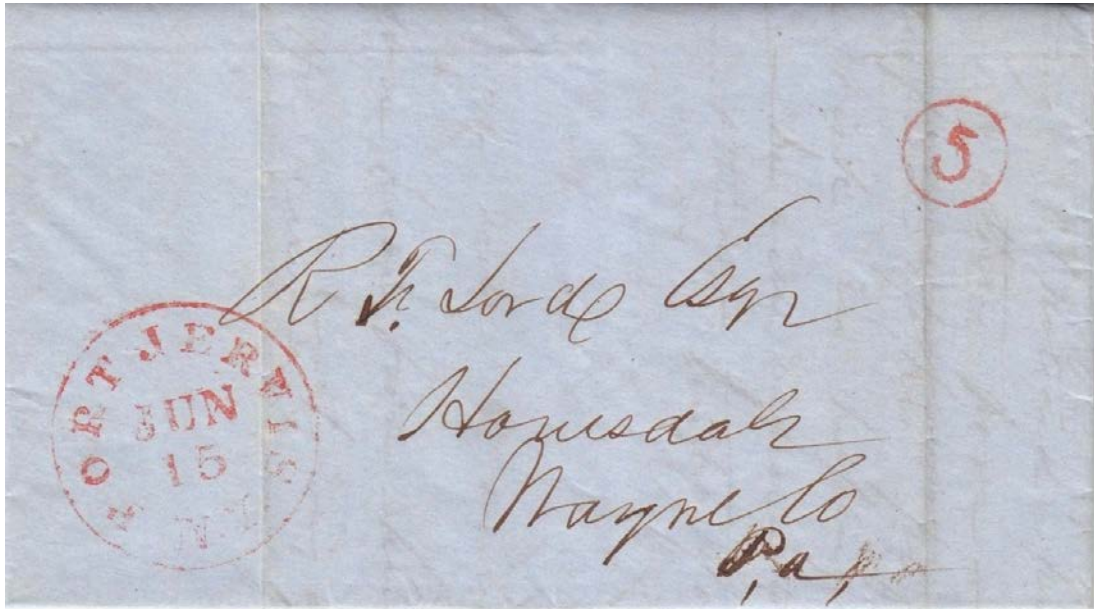 5
R. F. Lord Esqr
Honesdale
Wayne Co
Pa,
PORT JERVIS
JUN
15
N.Y.